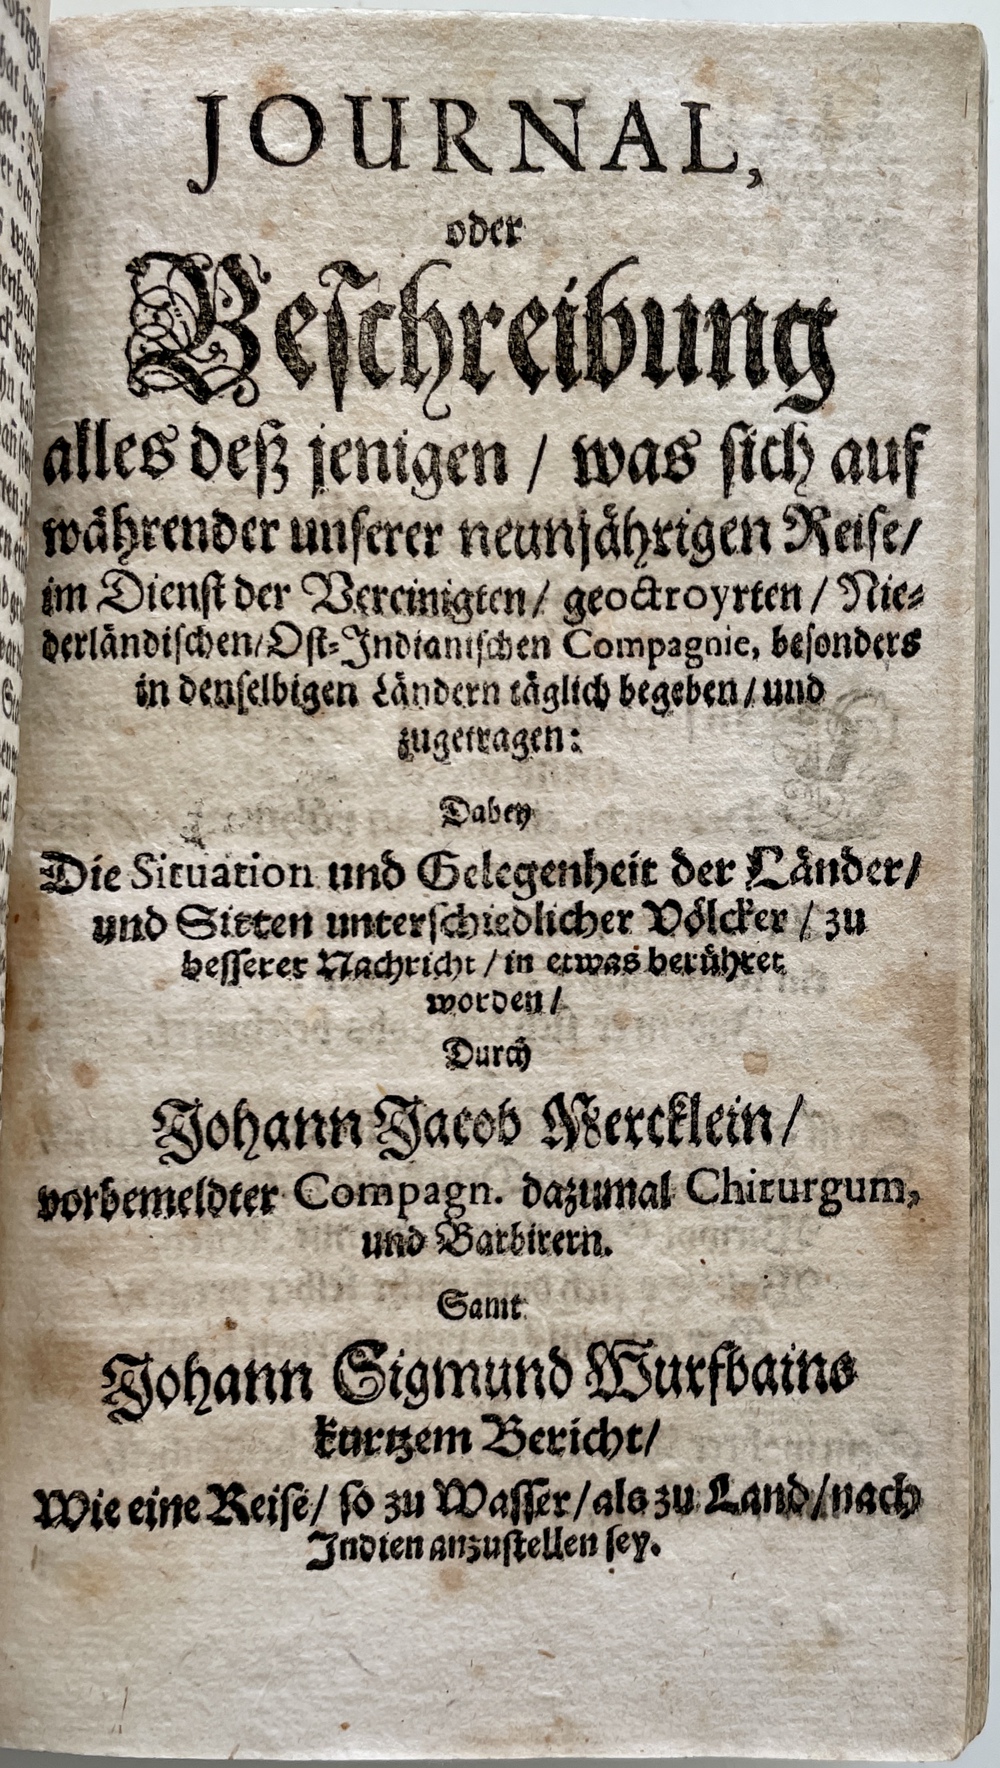 JOURNAL,
oder
Beschreibung
alles deß jenigen / was sich auf
währender unserer neunjährigen Reise/
im Dienst der Vereinigten / geoctroyrten / Nie-
derländischen/Ost-Indianischen Compagnie, besonders
in denselbigen Ländern täglich begeben / und
zugetragen:
Dabey
Die Situation und Gelegenheit der Länder/
und Sitten unterschiedlicher Völcker / zu
besserer Nachricht / in etwas berühret
worden /
Durch
Johann Jacob Mercklein /
vorbemeldter Compagn. dazumal Chirurgum,
und Barbirern.
Samt
Johann Sigmund Wurfbains
kurtzem Bericht/
Wie eine Reise/ so zu Wasser/ als zu Land/nach
Indien anzustellen sey.